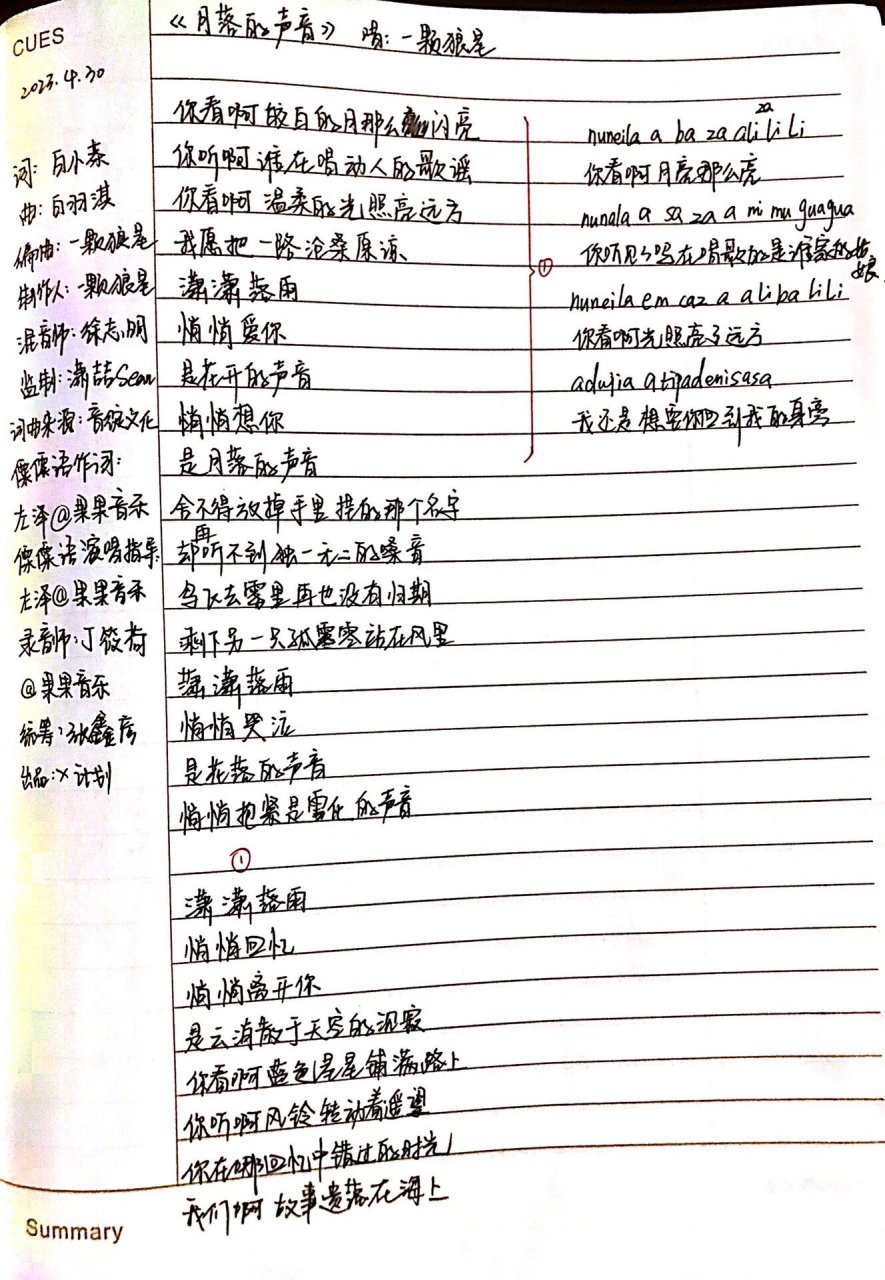 《月落的声音》 唱:一颗狼星
CUES
2023.4.30
词:白小豢
曲:白羽淇
编曲:一颗狼星
制作人:一颗狼星
混音师:徐志明
监制:潇喆Sean
词曲来源:音绽文化
傈僳语作词:
左泽@果果音乐
傈僳语演唱指导:
左泽@果果音乐
录音师:丁筱荷
@果果音乐
统筹:张鑫彦
出品:X计划
你看啊皎白的月那么闪亮
你听啊谁在唱动人的歌谣
你看啊温柔的光照亮远方
我愿把一路沧桑原谅
潇潇落雨
悄悄爱你
是花开的声音
悄悄想你
是月落的声音
舍不得放掉手里捏的那个名字
却再听不到独一无二的嗓音
鸟飞去雾里再也没有归期
剩下另一只孤零零站在风里
潇潇落雨
悄悄哭泣
是花落的声音
悄悄抱紧是雪化的声音
①
潇潇落雨
悄悄回忆
悄悄离开你
是云消散于天空的沉寂
你看啊蓝色星星铺满路上
你听啊风铃转动着遥望
你在哪回忆中错过的时光
我们啊故事遗落在海上
①
za
nuneila a ba za ali li li
你看啊月亮那么亮
nunala a sa za a mi mu guagua
你听见了吗在唱歌的是谁家的姑娘
nuneila em caz a ali ba li li
你看啊光照亮了远方
adujia atipadenisasa
我还是想要你回到我的身旁
Summary